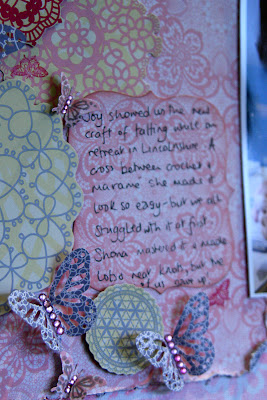 Joy showed us the new
craft of tatting whilst on
retreat in Lincolnshire. A
cross between crochet &
marame. She made it
look so easy - but we all
struggled with it at first.
Shona mastered it & made
Lobo near knots, but the
of us gave up